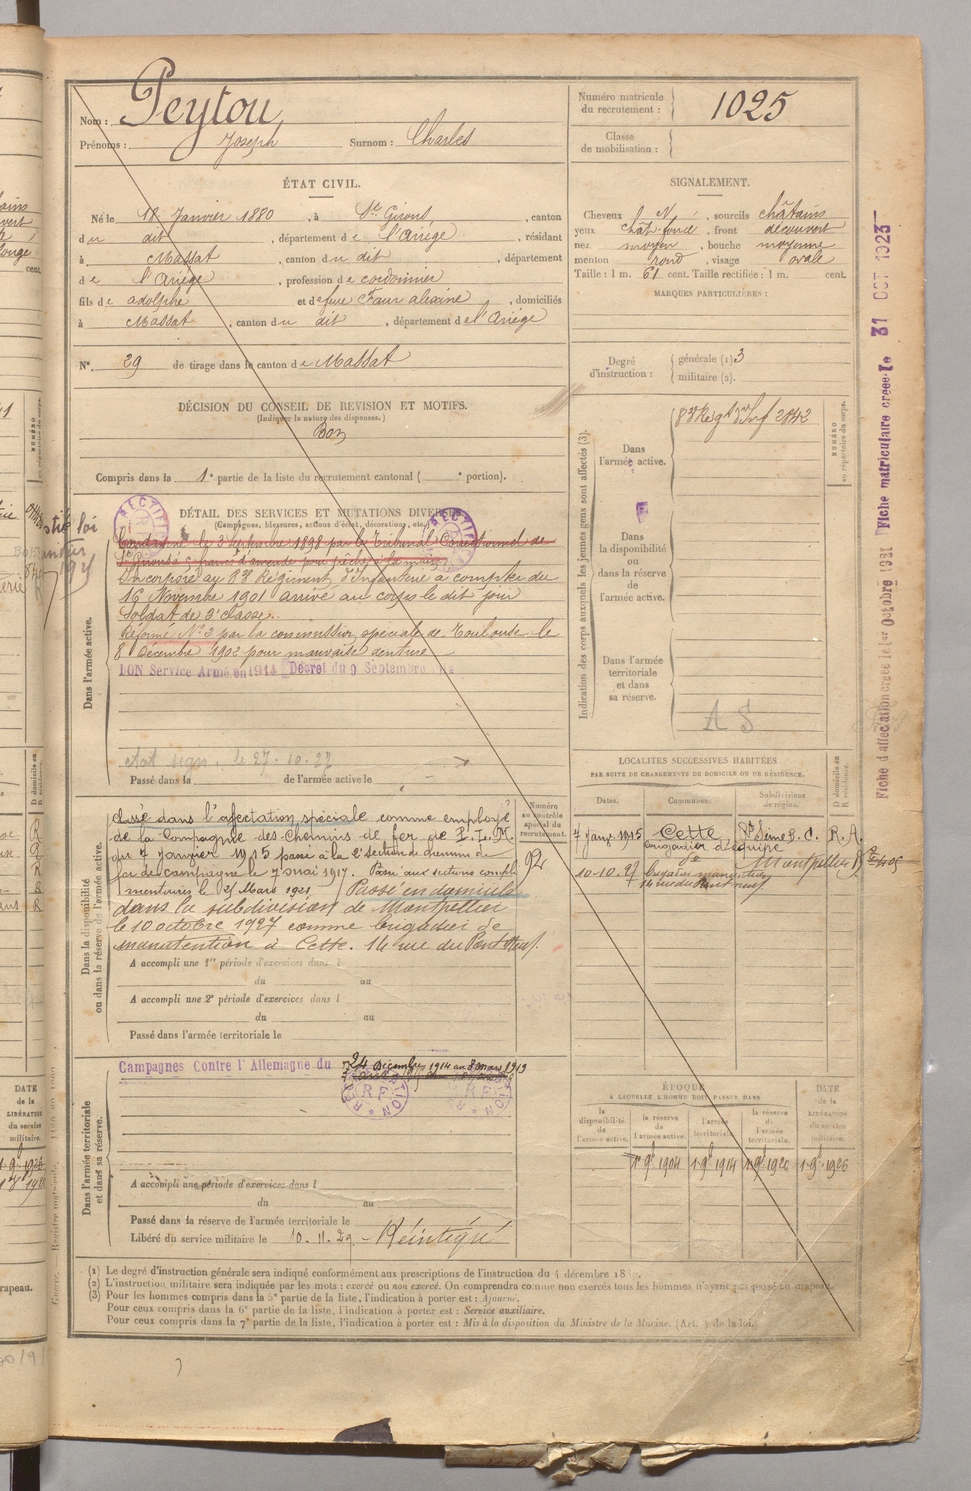 Nom : Peytou
Prénoms : Joseph Surnom : Charles
Numéro matricule du recrutement : 1025
Classe de mobilisation :
ÉTAT CIVIL.
Né le 18 Janvier 1880, à St Girons, canton
du dit, département de l'Ariège, résidant
à Massat, canton du dit, département
de l'Ariège, profession de cordonnier
fils de adolphe et de feue Faur alexine, domiciliés
à Massat, canton du dit, département de l'Ariège
N°. 29 de tirage dans le canton de Massat
SIGNALEMENT.
Cheveux N, sourcils châtains
yeux chât. foncé, front découvert
nez moyen, bouche moyenne
menton rond, visage ovale
Taille : 1 m. 61 cent. Taille rectifiée : 1 m. cent.
MARQUES PARTICULIÈRES :
Degré d'instruction : générale (1) 3
militaire (2).
DÉCISION DU CONSEIL DE REVISION ET MOTIFS.
(Indiquer la nature des dispenses.)
Bon
Compris dans la 1e partie de la liste du recrutement cantonal ( e portion).
DÉTAIL DES SERVICES ET MUTATIONS DIVERSES
(Campagnes, blessures, actions d'éclat, décorations, etc.)
Condamné le 3 septembre 1898 par le Tribunal Correctionnel de
St Girons à 5 francs d'amende pour pêche à la main
Dans l'armée active.
Incorporé au 83e Régiment d'Infanterie à compter du
16 Novembre 1901 arrivé au corps le dit jour
Soldat de 2e classe.
Réformé N° 2 par la commission spéciale de Toulouse le
8 Décembre 1902 pour mauvaise denture
Service Armé en 1914 Décret du 9 Septembre
le 27-10-27
Passé dans la de l'armée active le
Indication des corps auxquels les jeunes gens sont affectés (3).
Dans l'armée active.
83e Régt d'Inf 2142
NUMÉRO au répertoire du corps.
Dans la disponibilité ou dans la réserve de l'armée active.
Dans l'armée territoriale et dans sa réserve.
A S
Fiche d'affectation créée le 1er Octobre 1921 Fiche matriculaire créée le 31 OCT 1923
LOCALITES SUCCESSIVES HABITÉES
PAR SUITE DE CHANGEMENTS DE DOMICILE OU DE RÉSIDENCE.
Dates. Communes. Subdivisions de région. D domicile ou R résidence.
7 Janv. 1915 Cette R. A.
brigadier d'équipe
10-10-27 de Montpellier
14 rue du Pont neuf
Dans la disponibilité ou dans la réserve de l'armée active.
Numéro au contrôle spécial du recrutement.
92
classé dans l'affectation spéciale comme employé
de la Compagnie des Chemins de fer de P. L. M.
du 7 janvier 1915 passé à la 2e Section de chemins de
fer de campagne le 7 mai 1917. Passé aux sections complé
mentaires le 21 Mars 1921 Passé en domicile
dans la subdivision de Montpellier
le 10 octobre 1927 comme brigadier de
manutention à Cette. 14 rue du Pont Neuf.
A accompli une 1re période d'exercices dans l
du au
A accompli une 2e période d'exercices dans l
du au
Passé dans l'armée territoriale le
Dans l'armée territoriale et dans sa réserve.
Campagnes Contre l'Allemagne du 24 Décembre 1914 au 8 mars 1919
A accompli une période d'exercices dans l
du au
Passé dans la réserve de l'armée territoriale le
Libéré du service militaire le 10.11.29 Réintégré
ÉPOQUE
À LAQUELLE L'HOMME DOIT PASSER DANS
la disponibilité de l'armée active. la réserve de l'armée active. l'armée territoriale. la réserve de l'armée territoriale.
DATE de la LIBÉRATION du service militaire.
1.9bre 1904 1.9bre 1914 1.9bre 1920 1.9bre 1926
(1) Le degré d'instruction générale sera indiqué conformément aux prescriptions de l'instruction du 4 décembre 18
(2) L'instruction militaire sera indiquée par les mots : exercé ou non exercé. On comprendra comme non exercés tous les hommes n'ayant pas passé au drapeau.
(3) Pour les hommes compris dans la 5e partie de la liste, l'indication à porter est : Ajourné.
Pour ceux compris dans la 6e partie de la liste, l'indication à porter est : Service auxiliaire.
Pour ceux compris dans la 7e partie de la liste, l'indication à porter est : Mis à la disposition du Ministre de la Marine. (Art. de la loi.